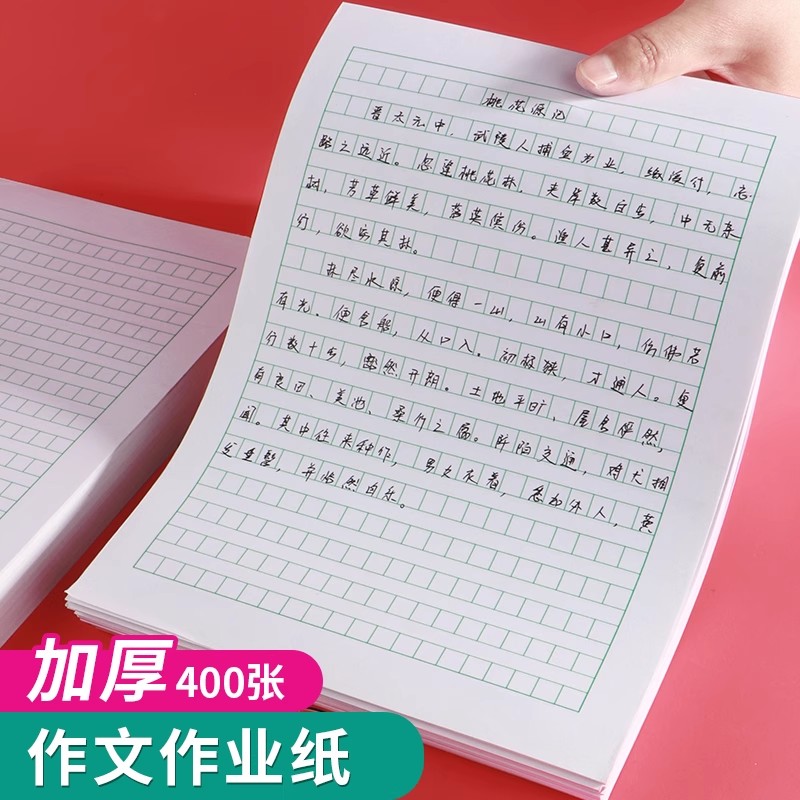 桃花源记
晋太元中，武陵人捕鱼为业，缘溪行，忘
路之远近。忽逢桃花林，夹岸数百步，中无杂
树，芳草鲜美，落英缤纷。渔人甚异之，复前
行，欲穷其林。
林尽水源，便得一山，山有小口，仿佛若
有光。便舍船，从口入。初极狭，才通人。复
行数十步，豁然开朗。土地平旷，屋舍俨然，
有良田、美池、桑竹之属。阡陌交通，鸡犬相
闻。其中往来种作，男女衣着，悉如外人，黄
发垂髫，并怡然自乐。
加厚400张
作文作业纸